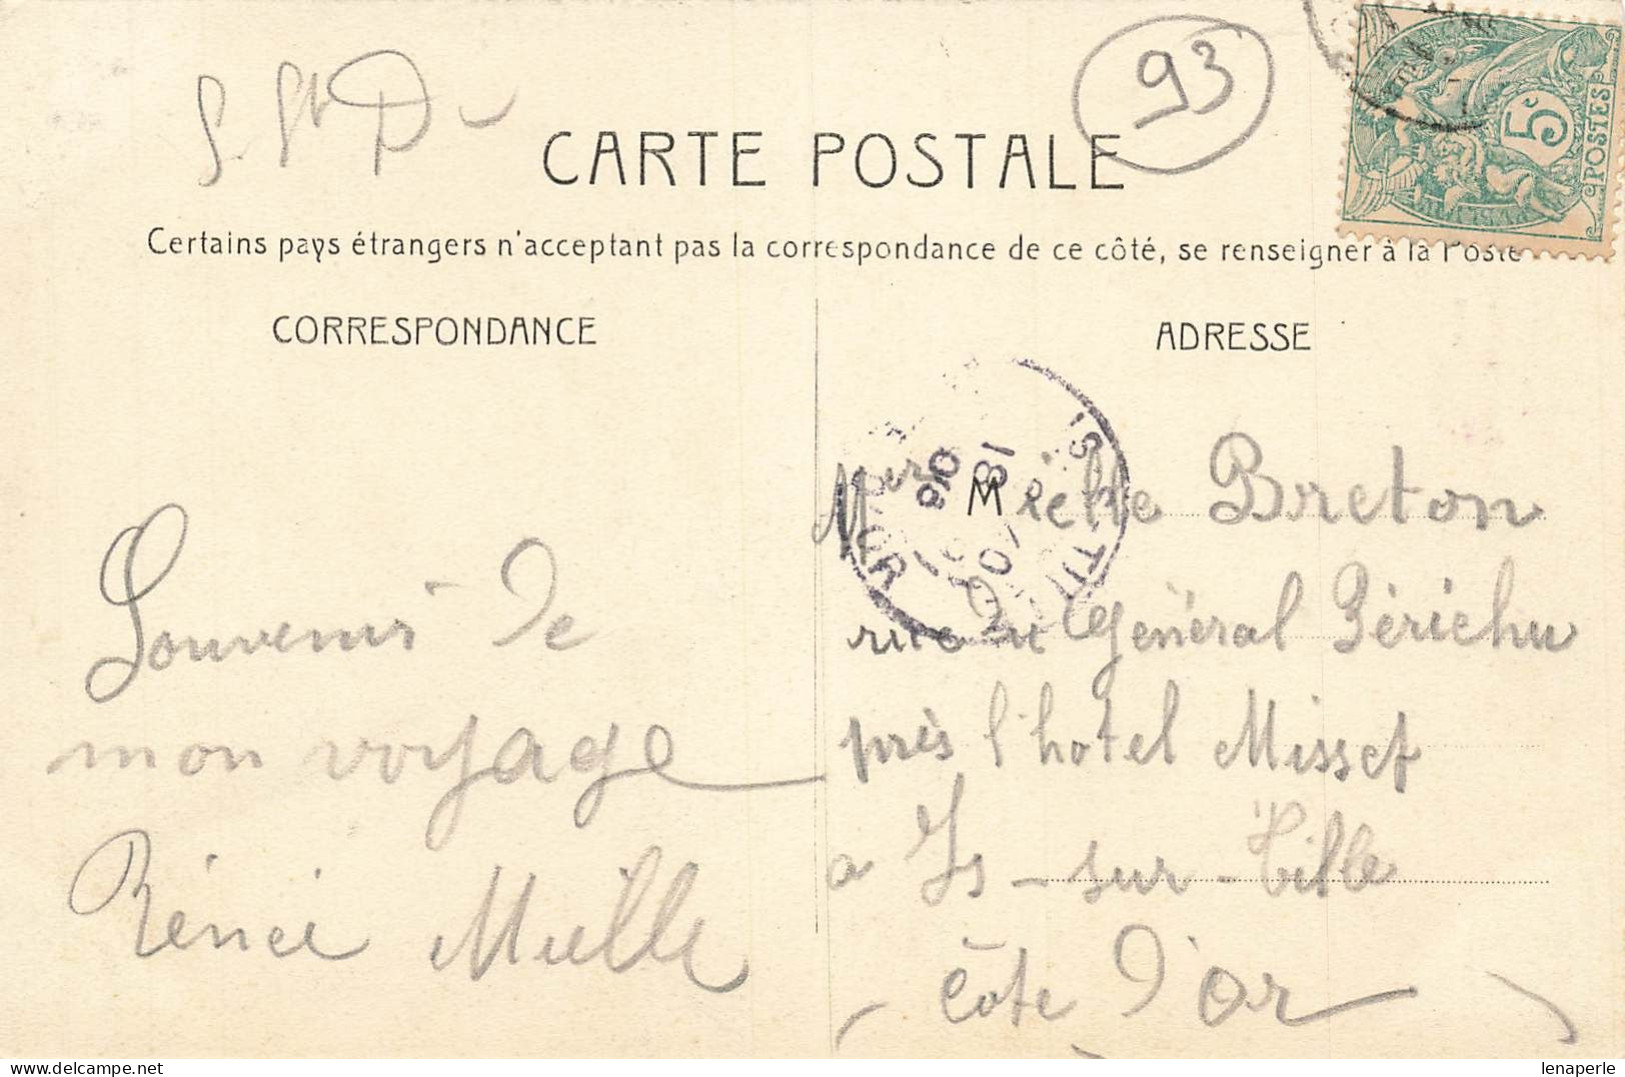 93
CARTE POSTALE
5c
POSTES
Certains pays étrangers n'acceptant pas la correspondance de ce côté, se renseigner à la Poste
CORRESPONDANCE
ADRESSE
M
Breton
rue du Général
près l'hotel Misset
a Is-sur-Tille
Côte d'or
Souvenir de
mon voyage
Rénée Mielle
18
lenaperle